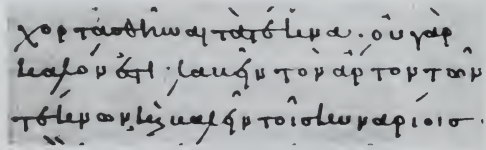 χορτασθῆναι τὰ τέκνα· οὐ γὰρ
καλόν ἐστι· λαβεῖν τὸν ἄρτον τῶν
τέκνων, καὶ βαλεῖν τοῖς κυναρίοις·